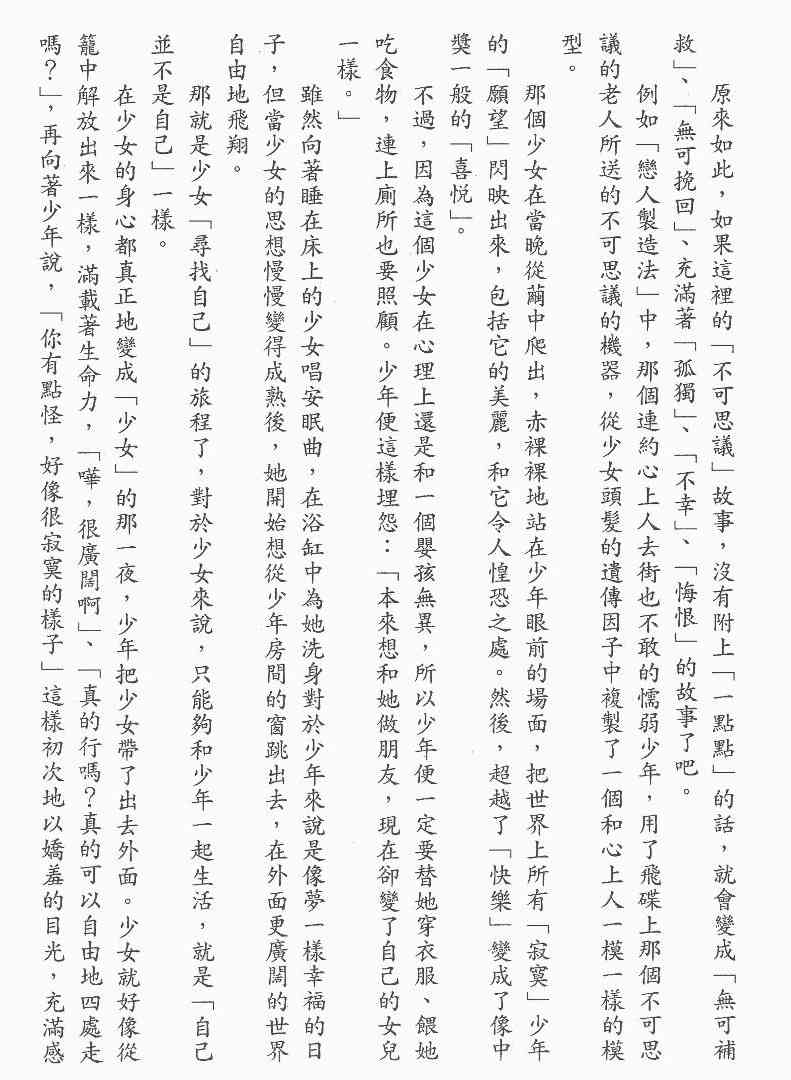 原來如此，如果這裡的「不可思議」故事，沒有附上「一點點」的話，就會變成「無可補
救」、「無可挽回」、充滿著「孤獨」、「不幸」、「悔恨」的故事了吧。
例如「戀人製造法」中，那個連約心上人去街也不敢的懦弱少年，用了飛碟上那個不可思
議的老人所送的不可思議的機器，從少女頭髮的遺傳因子中複製了一個和心上人一模一樣的模
型。
那個少女在當晚從繭中爬出，赤裸裸地站在少年眼前的場面，把世界上所有「寂寞」少年
的「願望」閃映出來，包括它的美麗，和它令人惶恐之處。然後，超越了「快樂」變成了像中
獎一般的「喜悅」。
不過，因為這個少女在心理上還是和一個嬰孩無異，所以少年便一定要替她穿衣服、餵她
吃食物，連上廁所也要照顧。少年便這樣埋怨：「本來想和她做朋友，現在卻變了自己的女兒
一樣。」
雖然向著睡在床上的少女唱安眠曲，在浴缸中為她洗身對於少年來說是像夢一樣幸福的日
子，但當少女的思想慢慢變得成熟後，她開始想從少年房間的窗跳出去，在外面更廣闊的世界
自由地飛翔。
那就是少女「尋找自己」的旅程了，對於少女來說，只能夠和少年一起生活，就是「自己
並不是自己」一樣。
在少女的身心都真正地變成「少女」的那一夜，少年把少女帶了出去外面。少女就好像從
籠中解放出來一樣，滿載著生命力，「嘩，很廣闊啊」、「真的行嗎？真的可以自由地四處走
嗎？」，再向著少年說，「你有點怪，好像很寂寞的樣子」這樣初次地以嬌羞的目光，充滿感